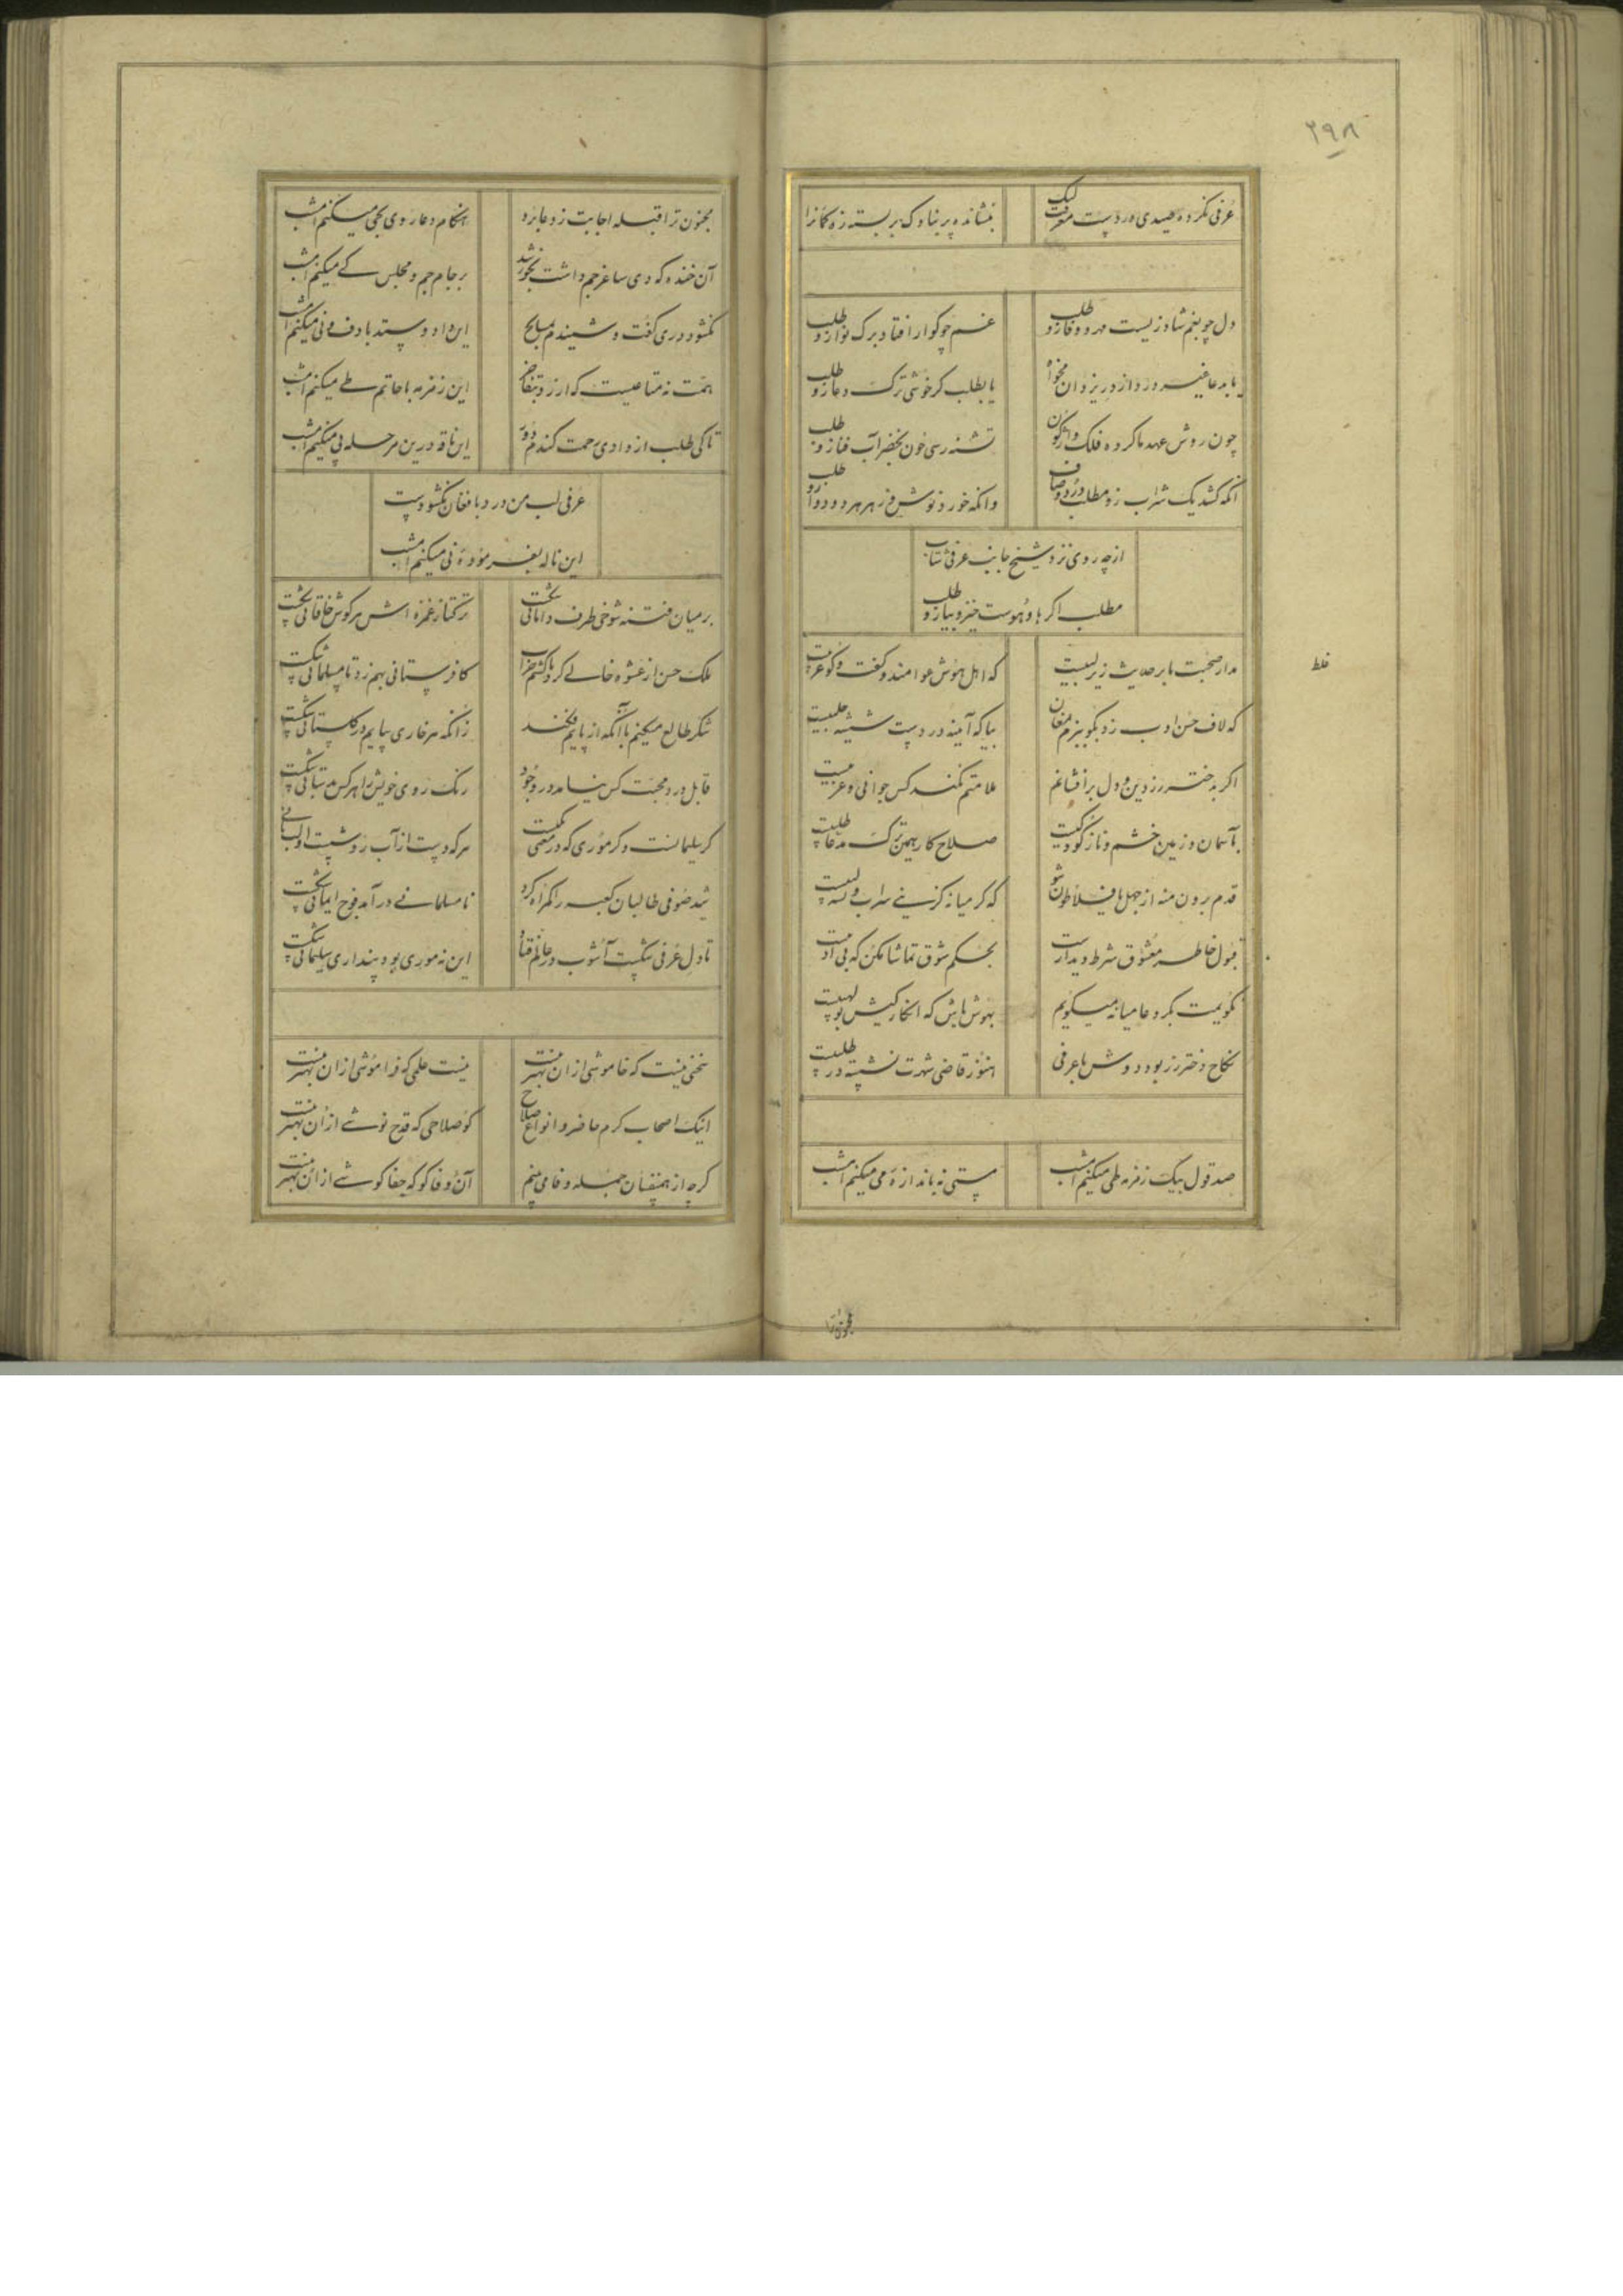 ۲۹۸
عرفی نکرده صیدی در دست معرفت لیک
ننشانده پر بناوک بر بسته زه کمانرا
دل چو بغم شاد زیست مهر و وفا زو طلب
غم چو گوار افتاد برگ نوا زو طلب
یا بدعا در یزدان مخواه
یا بطلب گر خوشی ترک دعا زو طلب
چون روش عهد ما کرده فلک واژگون
تشنه رسی خون بخضر آب فنا زو طلب
آنکه کشد یک شراب زو مطلب درد و صاف
وانکه خورد نوش و زهر هر دو دوا زو طلب
از چه روی نزد شیخ جانب عرفی شتاب
مطلب اگر ها و هوست خیز و بیا زو طلب
مدار صحبت ما بر حدیث زیر لبیست
که اهل هوش عوامند و گفت و گو عربیست
که لاف حسن ادب زد بگو ببزم مغان
بیا که آینه در دست شیشه حلبیست
غلط
اگر بدختر رز دین و دل برافشانم
ملامتم نکند کس جوانی و عزبیست
بآسمان و زمین خشم و ناز کودکیت
صلاح کار همین ترک مدعا طلبیست
قدم برون منه از جهل یا فلاطون شو
که گر میانه گزینی سراب و تشنه لبیست
قبول خاطر معشوق شرط دیدارست
بحکم شوق تماشا مکن که بی ادبیست
نگویمت بگرو عامیانه میگویم
بهوش باش که انکار کیش بولهبیست
نکاح دختر رز بود دوش با عرفی
هنوز قاضی شهرت نشسته در طلبیست
صد قول بیک زمزمه طی میکنم امشب
مستی نه باندازه می میکنم امشب
مجنون ترا
مجنون ترا قبله اجابت ز دعا برد
هنگام دعا روی بحی میکنم امشب
آن خنده که دی ساغر جم داشت بخورشید
بر جام جم و مجلس کی میکنم امشب
نگشود دری گفت و شنیدم
این داد و ستد با دف و نی میکنم امشب
همت نه متاعیست که ارزد بتفاخر
این زمزمه با حاتم طی میکنم امشب
تا کی طلب از وادی رحمت کندم دور
این ناقه درین مرحله پی میکنم امشب
عرفی لب من در د بافغان نگشودست
این ناله بفرموده نی میکنم امشب
بر میان فتنه شوخی طرف دامانی شکست
ترکتاز غمزه اش هر گوش خاقانی شکست
ملک حسن از عشوه خالی کرد باکشم خراب
کافرستانی بهم زد تا مسلمانی شکست
شکر طالع میکنم با آنکه از پایم فکند
زانکه هر خاری بپایم در گلستانی شکست
قابل درد محبت کس نیامد در وجود
رنگ روی خویش را هر کس بدستانی شکست
گر سلیمانست و گر موری که در معنی یکیست
هر که دست از آب رو شست او لب نانی شکست
شد صوفی طالبان کعبه را گمراه کرد
نامسلمانی در آمد فوج ایمانی شکست
تا دل عرفی شکست آشوب در عالم فتاد
این نه موری بود پنداری سلیمانی شکست
سخنی نیست که خاموشی از آن بهتر نیست
نیست علمی که فراموشی از آن بهتر نیست
اینک اصحاب کرم حاضر و انواع صلاح
کو صلاحی که قدح نوشی از آن بهتر نیست
گرچه از همنفسان جمله وفا می بینم
آن وفا کو که جفا کوشی از آن بهتر نیست